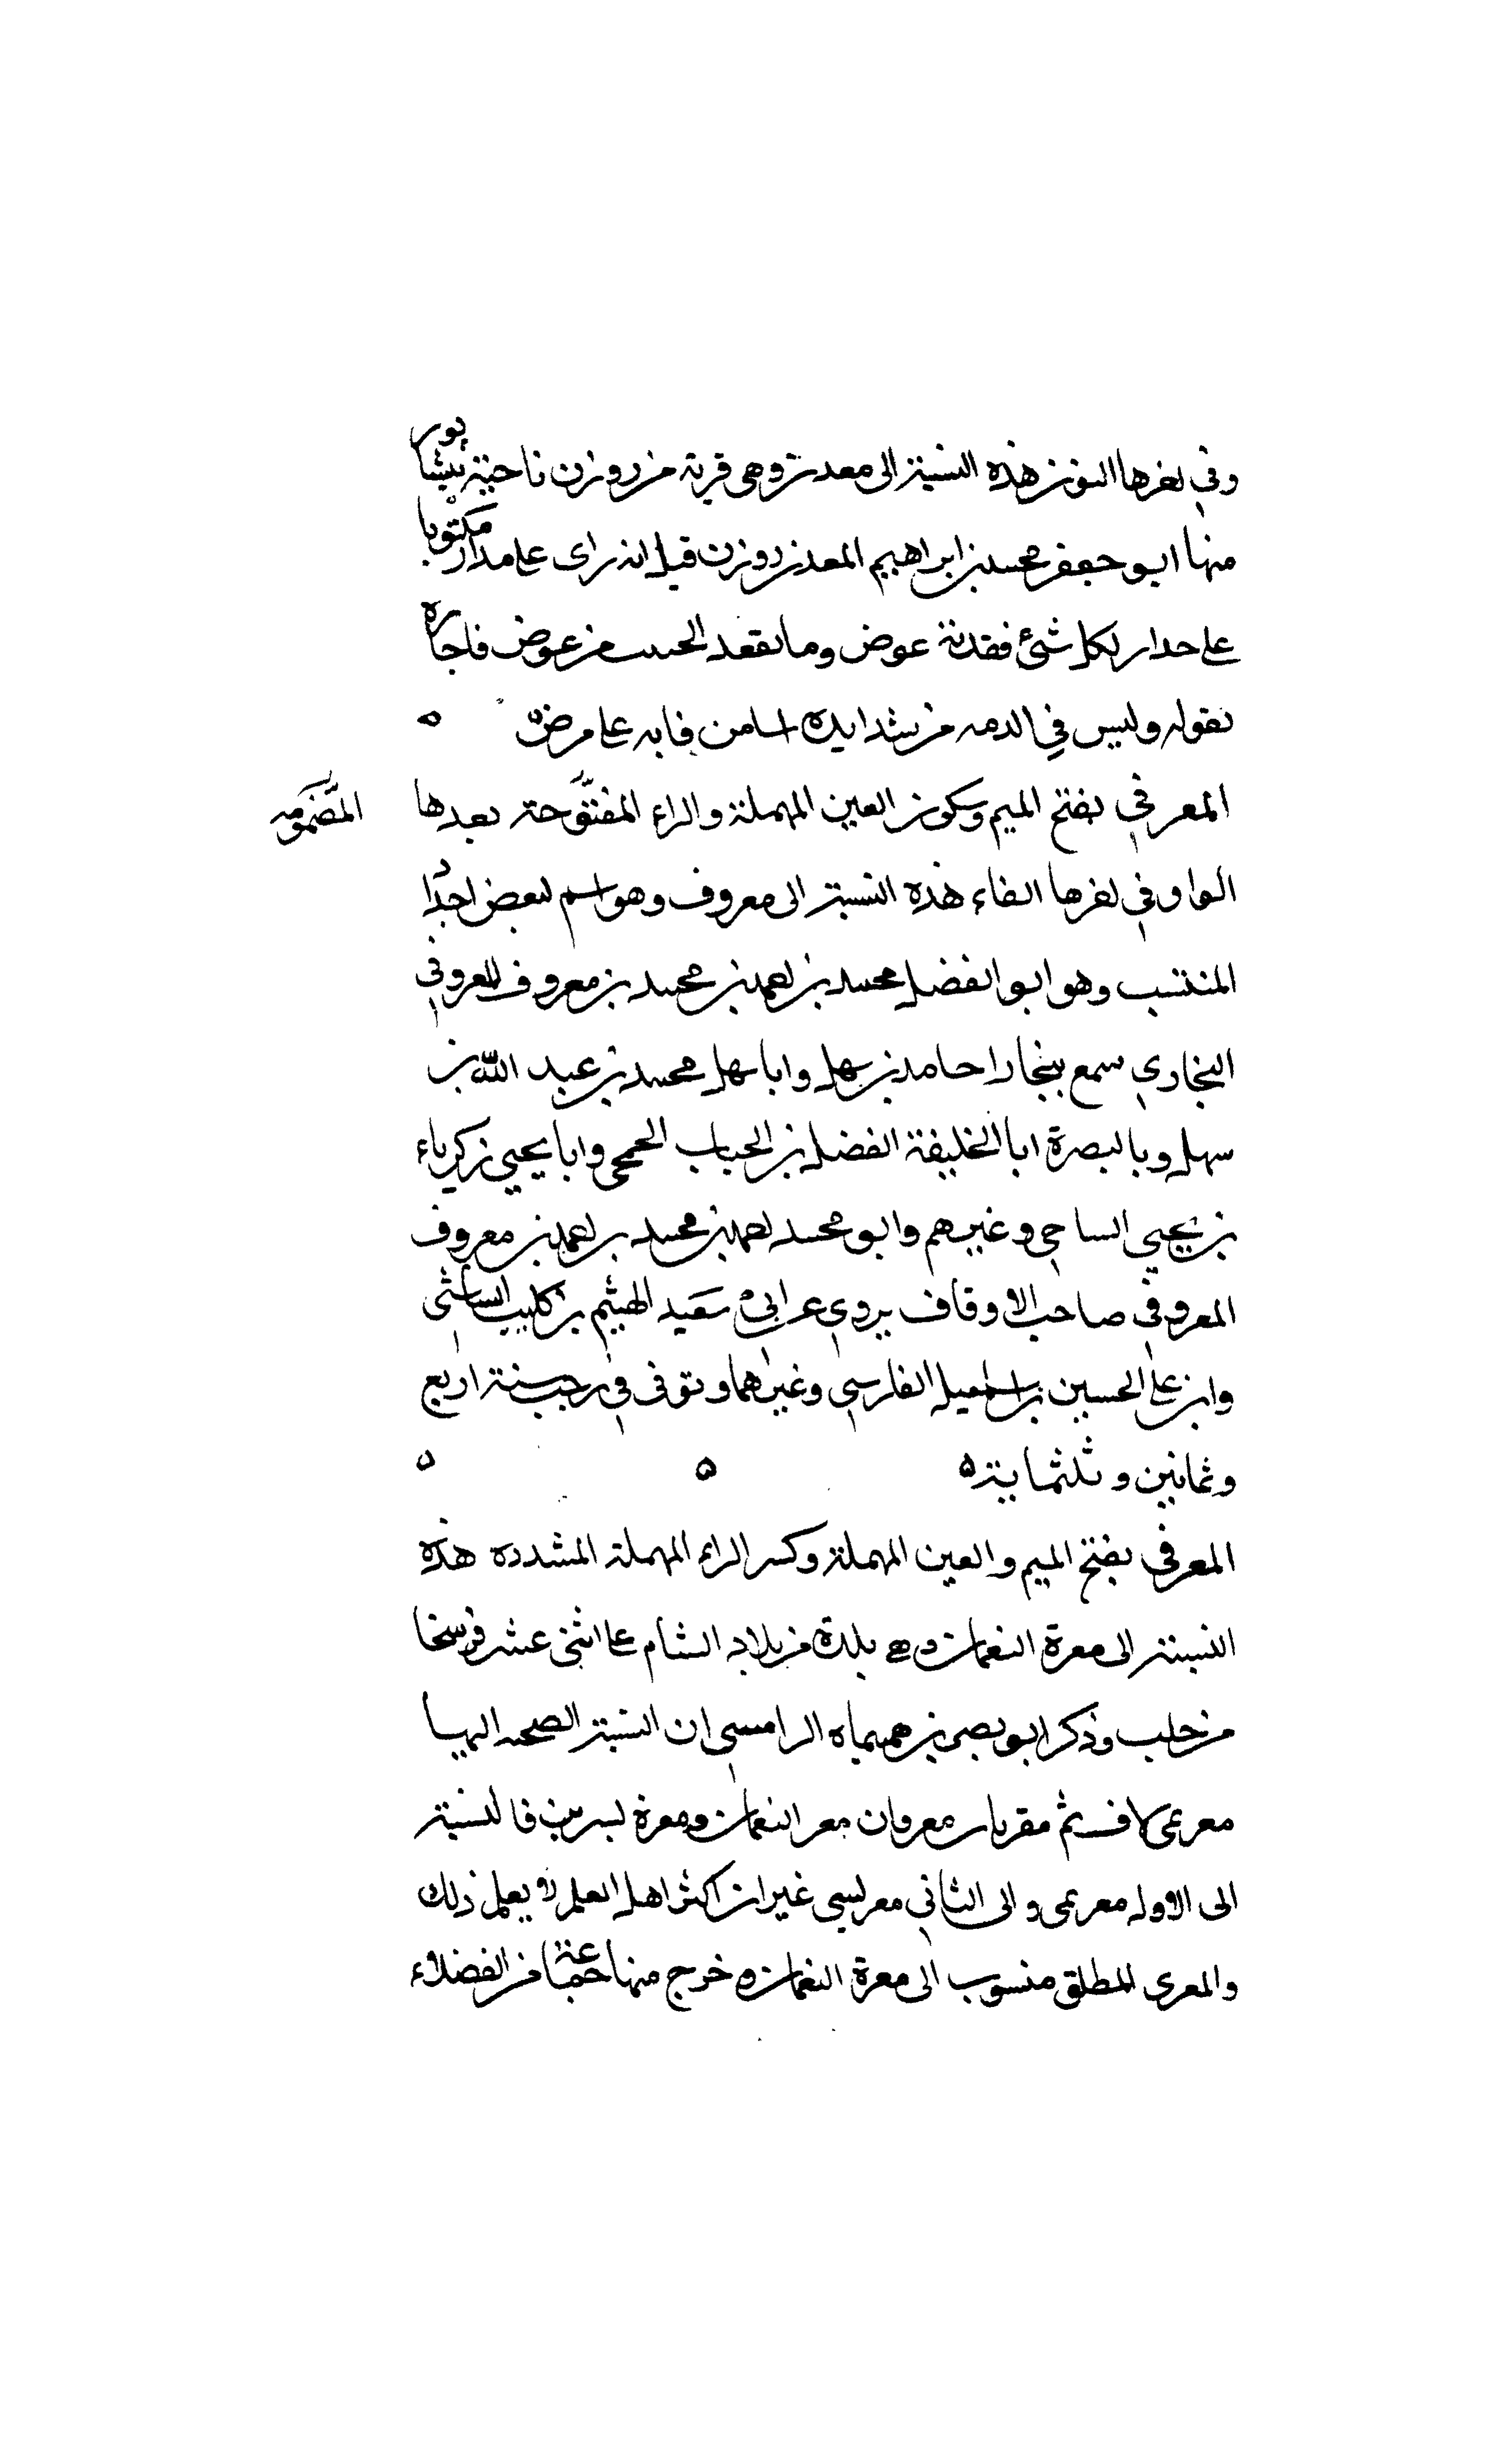 وفي اخرها النون هذه النسبة الى معدن وهى قرية من زوزن ناحية نيسابور
منها ابو جعفر محمد بن ابراهيم المعدني زوزن قيل انه راى على مدار مكتوبا
على جدار لكل شئ فقدته عوض وما لفقد الحبيب من عوض فاجازه
بقوله وليس في الدهر من شدايده اشد من فاقه على مرض ٥
المعرفي بفتح الميم وسكون العين المهملة والراء المفتوحة بعدها
المضمومه
الواو وفي اخرها الفاء هذه النسبة الى معروف وهو اسم لبعض اجداد
المنتسب وهو ابو الفضل محمد بن احمد بن محمد بن معروف المعروفي
البخاري سمع ببخارا حامد بن سهل وابا سهل محمد بن عبد الله بن
سهل وبالبصرة ابا الخليفة الفضل بن الحباب الجمحي وابا يحيي زكرياء
بن يحيي الساجي وغيرهم وابو محمد احمد بن محمد بن احمد بن معروف
المعروفي صاحب الاوقاف يروي عن ابي سعيد الهيثم بن كليب الشاشي
وابن علي الحسين بن اسمعيل الفارسي وغيرهما وتوفى في رجب سنة اربع
وثمانين وثلثماية ٥ ٥ ٥
المعرفي بفتح الميم والعين المهملة وكسر الراء المهملة المشدده هذه
النسبة الى معرة النعمان وهي بلدة من بلاد الشام على اثنى عشر فرسخا
من حلب وذكر ابو نصر بن هميماه الرامسي ان النسبة الصحيحه اليها
معرنمى لان ثم معرتان معر النعمان ومعرة نسرين فالنسبة
الى الاول معرنمى والى الثاني معرنسي غير ان اكثر اهل العلم لا يعلم ذلك
والمعرى المطلق منسوب الى معرة النعمان خرج منها جماعة من الفضلاء